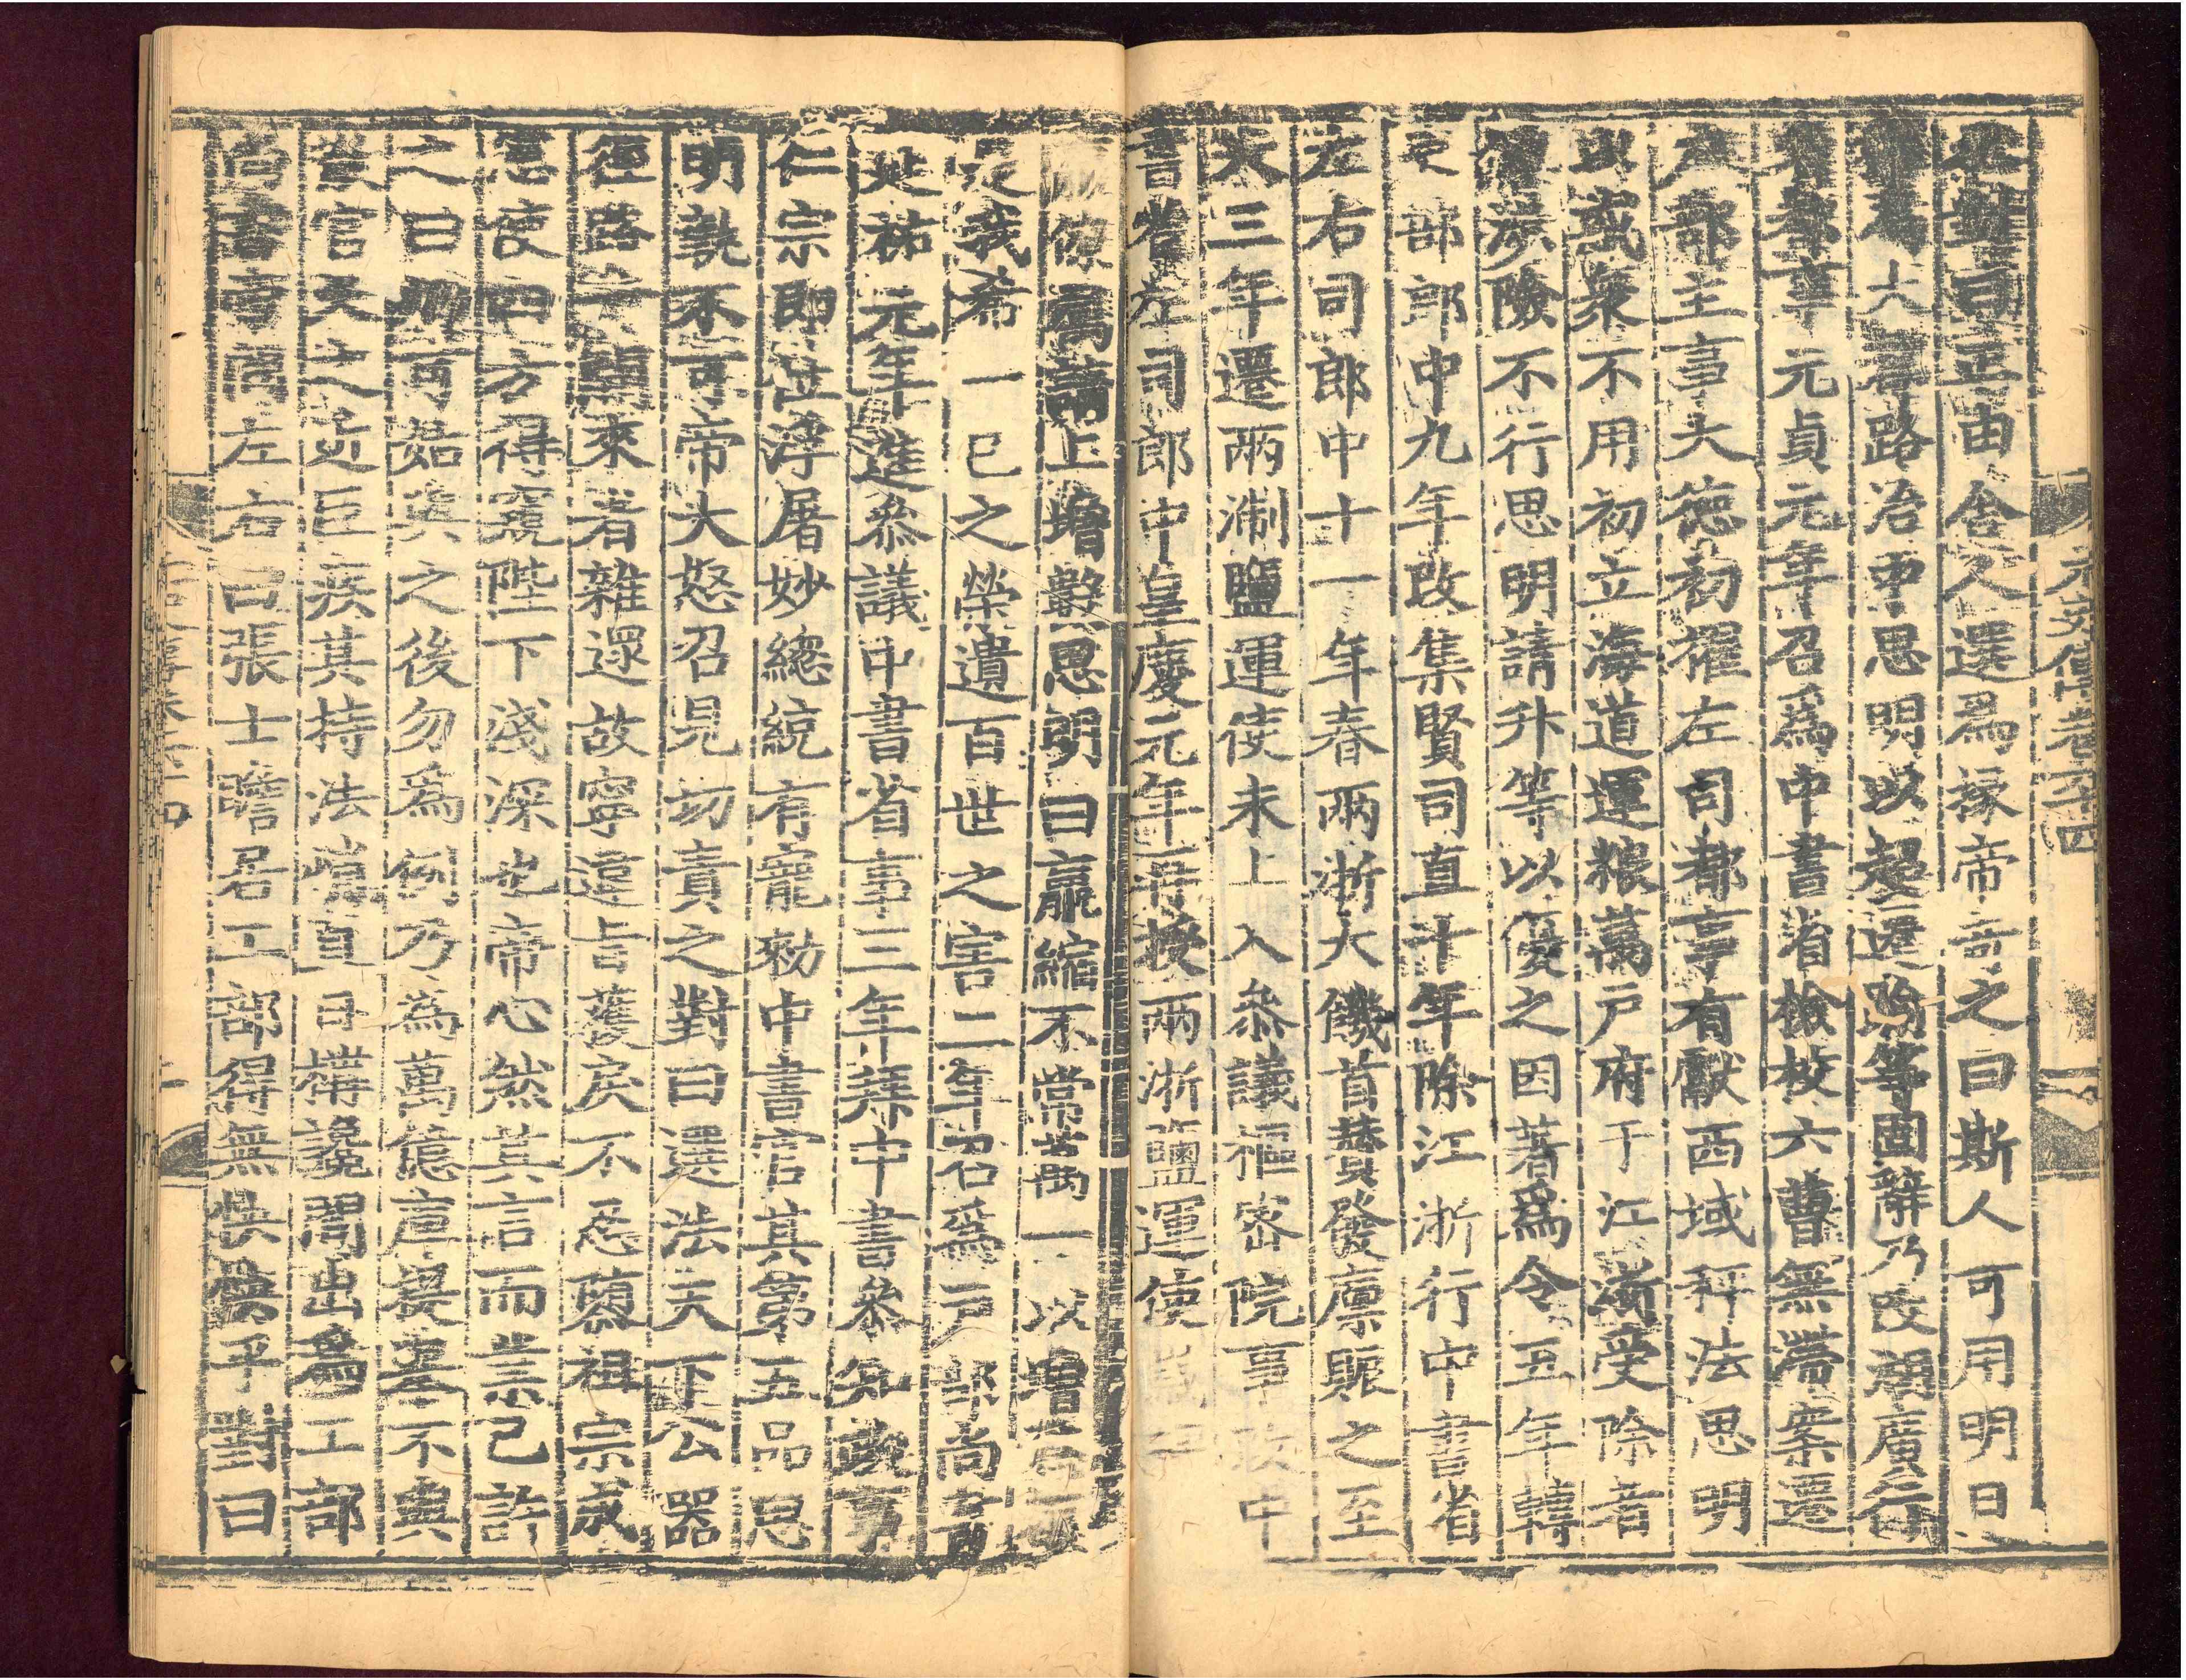 元史傳卷六十四
正由舍人選爲掾帝奇之曰斯人可用明日
大都路治中思明以超遷踰等固辭乃改湖廣行
省都事元貞元年召爲中書省檢校六曹無滯案遷
戶部主事大德初擢左司都事有獻西域秤法思明
以惑衆不用初立海道運糧萬戶府于江浙受除者
憚涉險不行思明請升等以優之因著爲令五年轉
吏部郎中九年改集賢司直十年除江浙行中書省
左右司郎中十一年春兩浙大饑首贊發廩賑之至
大三年遷兩淛鹽運使未上入參議樞密院事改中
書省左司郎中皇慶元年再授兩浙鹽運使歲
僚屬請上增數思明曰贏縮不常萬一以增爲
是我希一己之榮遺百世之害二年召爲戶部尚書
延祐元年進參議中書省事三年拜中書參知政事
仁宗即位浮屠妙總統有寵敕中書官其弟五品思
明執不可帝大怒召見切責之對曰選法天下公器
徑路一開來者雜遝故寧違旨獲戾不忍隳祖宗成
憲使四方得窺陛下淺深也帝心然其言而業已許
之曰卿可姑與之後勿爲例乃爲萬億庫提舉不與
散官久之近臣疾其持法峻直日搆讒間出爲工部
尚書帝問左右曰張士瞻居工部得無怏怏乎對曰